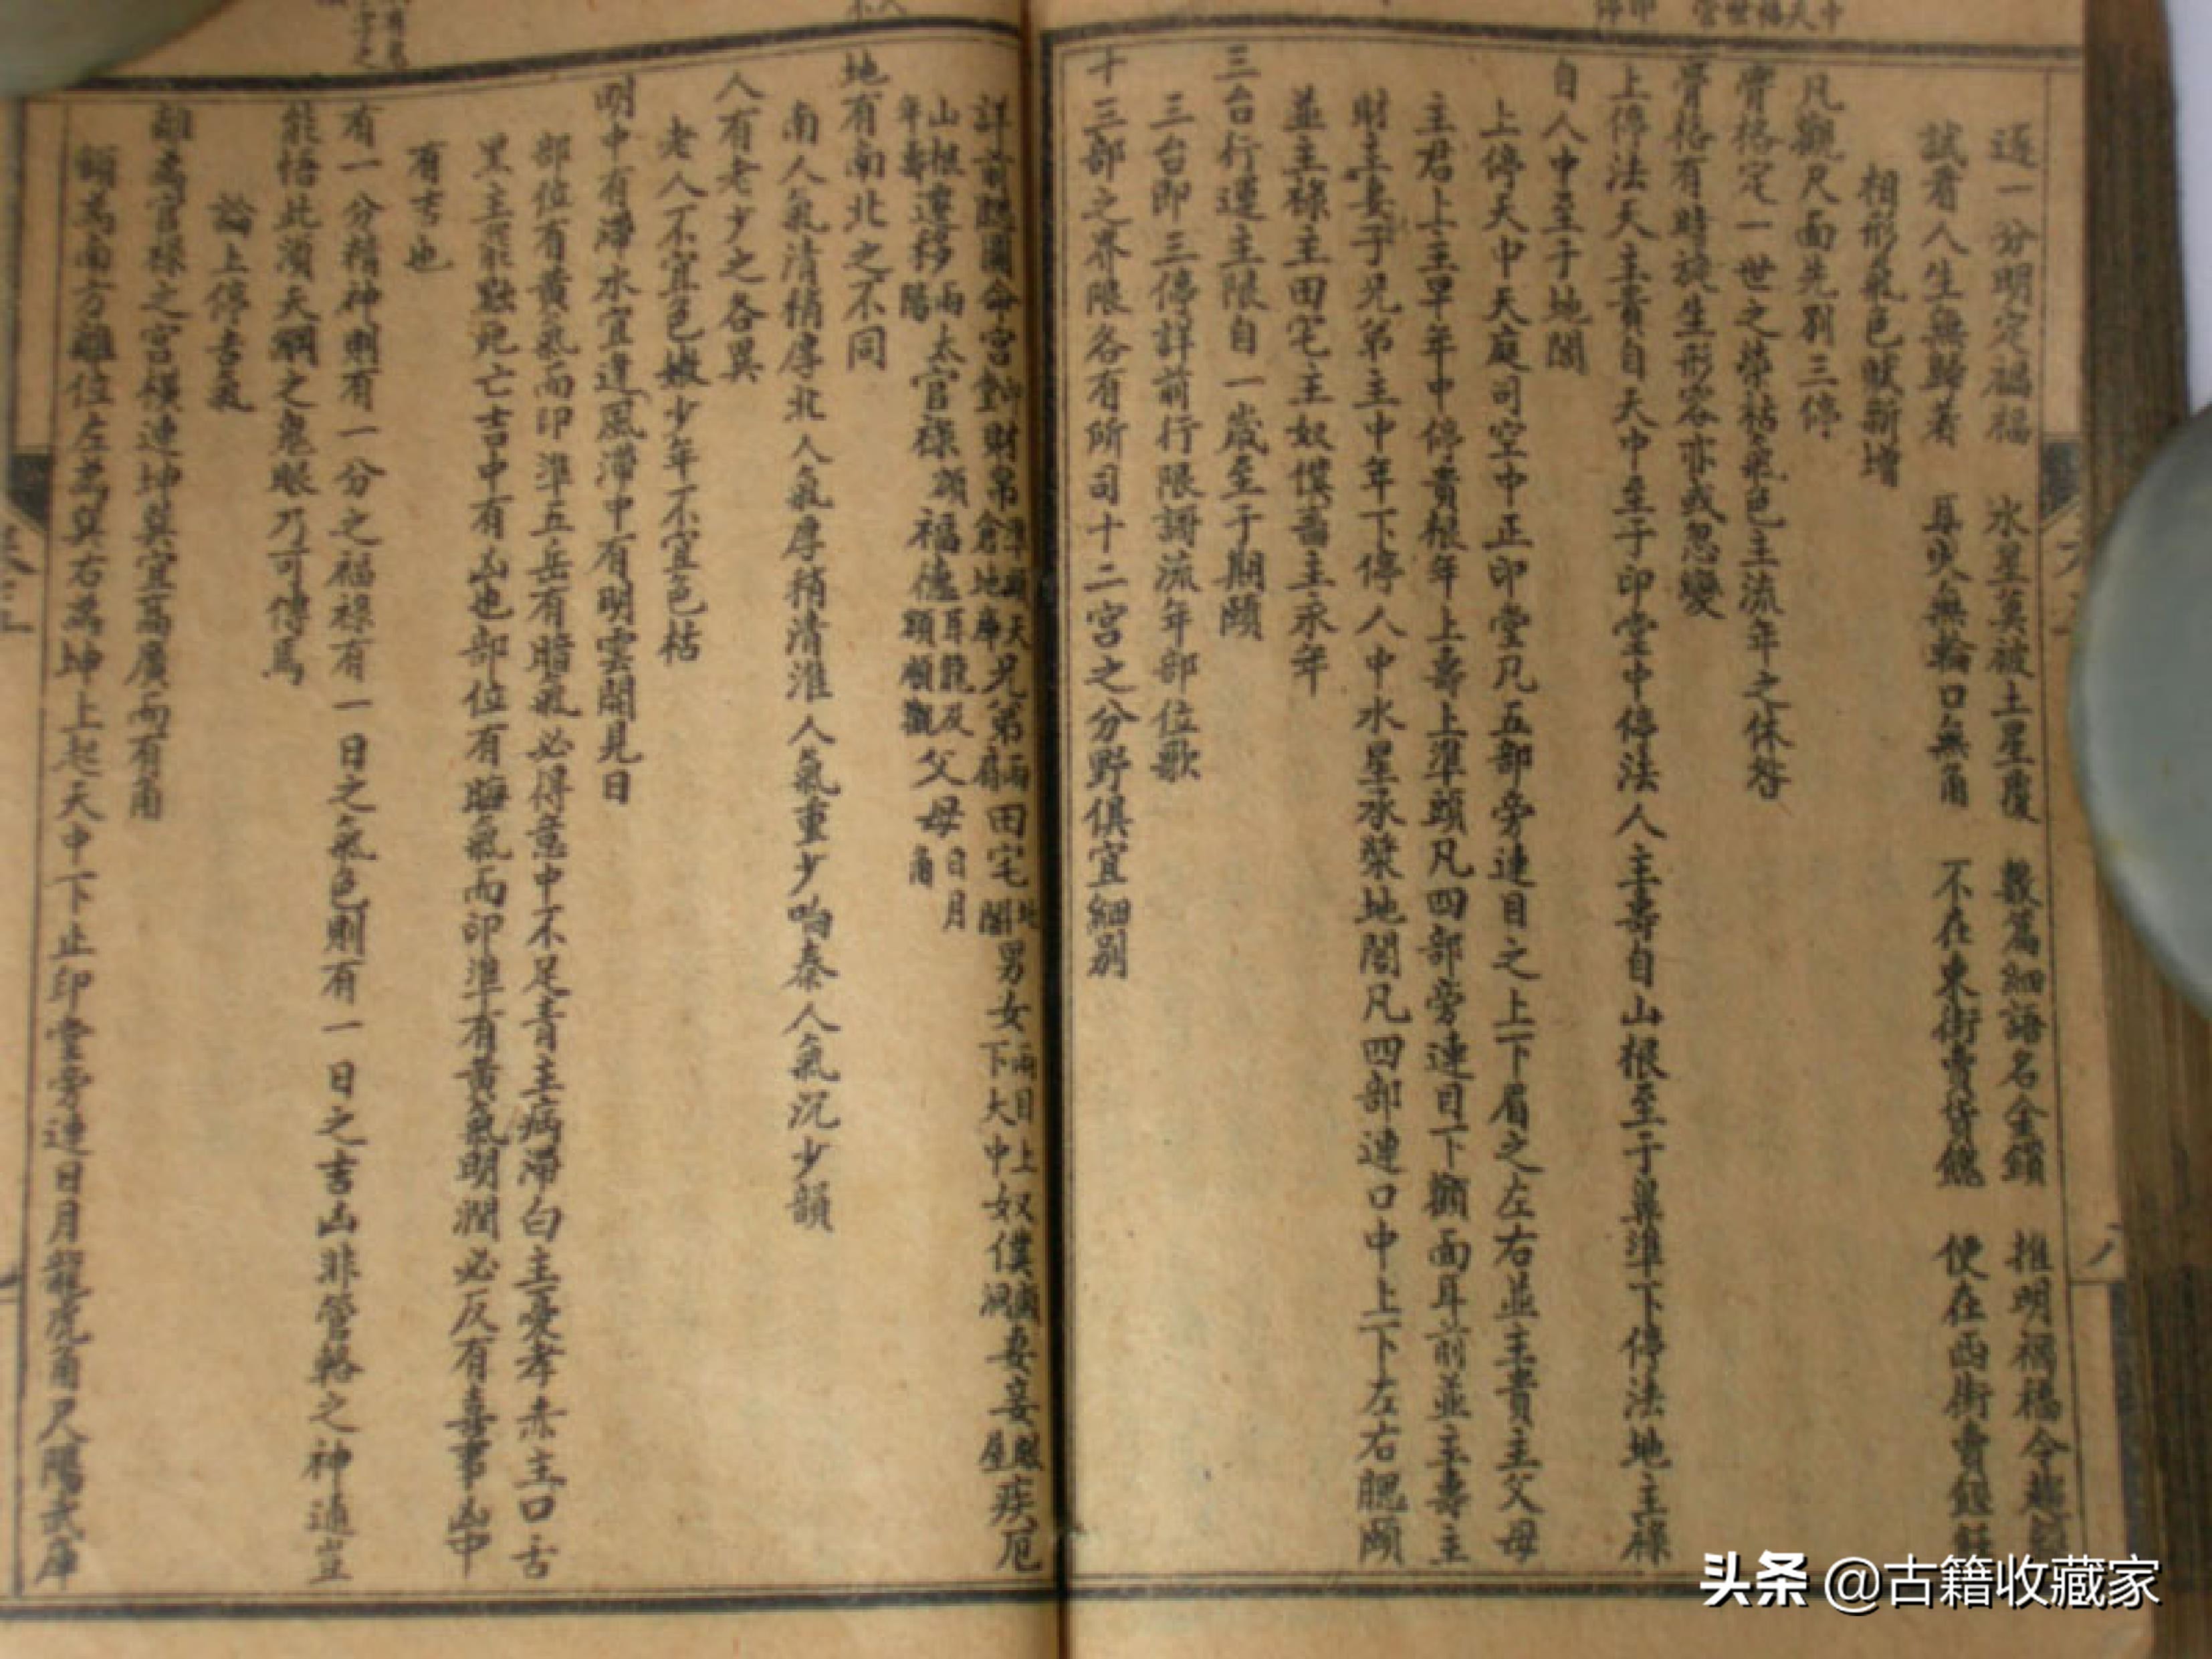 逐一分明定禍福　水星莫被土星覆　數篇細語名金鎖　推明禍福令
試看人生無歸著　耳尖無輪口無角　不在東街賣　便在西街賣
相形氣色賦新增
凡觀尺面先別三停
骨格定一世之榮枯氣色主流年之休咎
骨格有時旋生形容亦或忽變
上停法天主貴自天中至于印堂中停法人主壽自山根至于鼻準下停法地主祿
自人中至于地閣
上停天中天庭司空中正印堂凡五部旁連目之上下眉之左右並主貴主父母
主君上主早年中停責根年上壽上準頭凡四部旁連目下顴面耳前並主壽主
財主妻子兄弟主中年下停人中水星承漿地閣凡四部連口中上下左右腮頤
並主祿主田宅主奴僕畜主永年
三台行運主限自一歲至于期頤
三台即三停詳前行限調流年部位歌
十三部之界限各有所司十二宮之分野俱宜細別
詳前 圖命宮 財帛 兄弟 田宅 男女 奴僕 妻妾 疾厄
山根年壽遷移 太陽官祿額福德 父母日月角
地有南北之不同
南人氣清稍厚北人氣厚稍清淮人氣重少响秦人氣沉少韻
人有老少之各異
老人不宜色嫩少年不宜色枯
明中有滯水宜逢風滯中有明雲開見日
部位有黃氣而印準五岳有暗氣必得意中不足青主病滯白主憂孝赤主口舌
黑主 死亡吉中有凶也部位有晦氣而印準有黃氣明潤必反有喜事凶中
有吉也
有一分精神則有一分之福祿有一日之氣色則有一日之吉凶非管輅之神通豈
能悟此須天綱之鬼眼乃可傳焉
論上停吉氣
離為官祿之宮橫連坤巽宜高廣而有角
額為南方離位左為巽右為坤上起天中下止印堂旁連日月龍虎角尺陽武庫
头条 @古籍收藏家